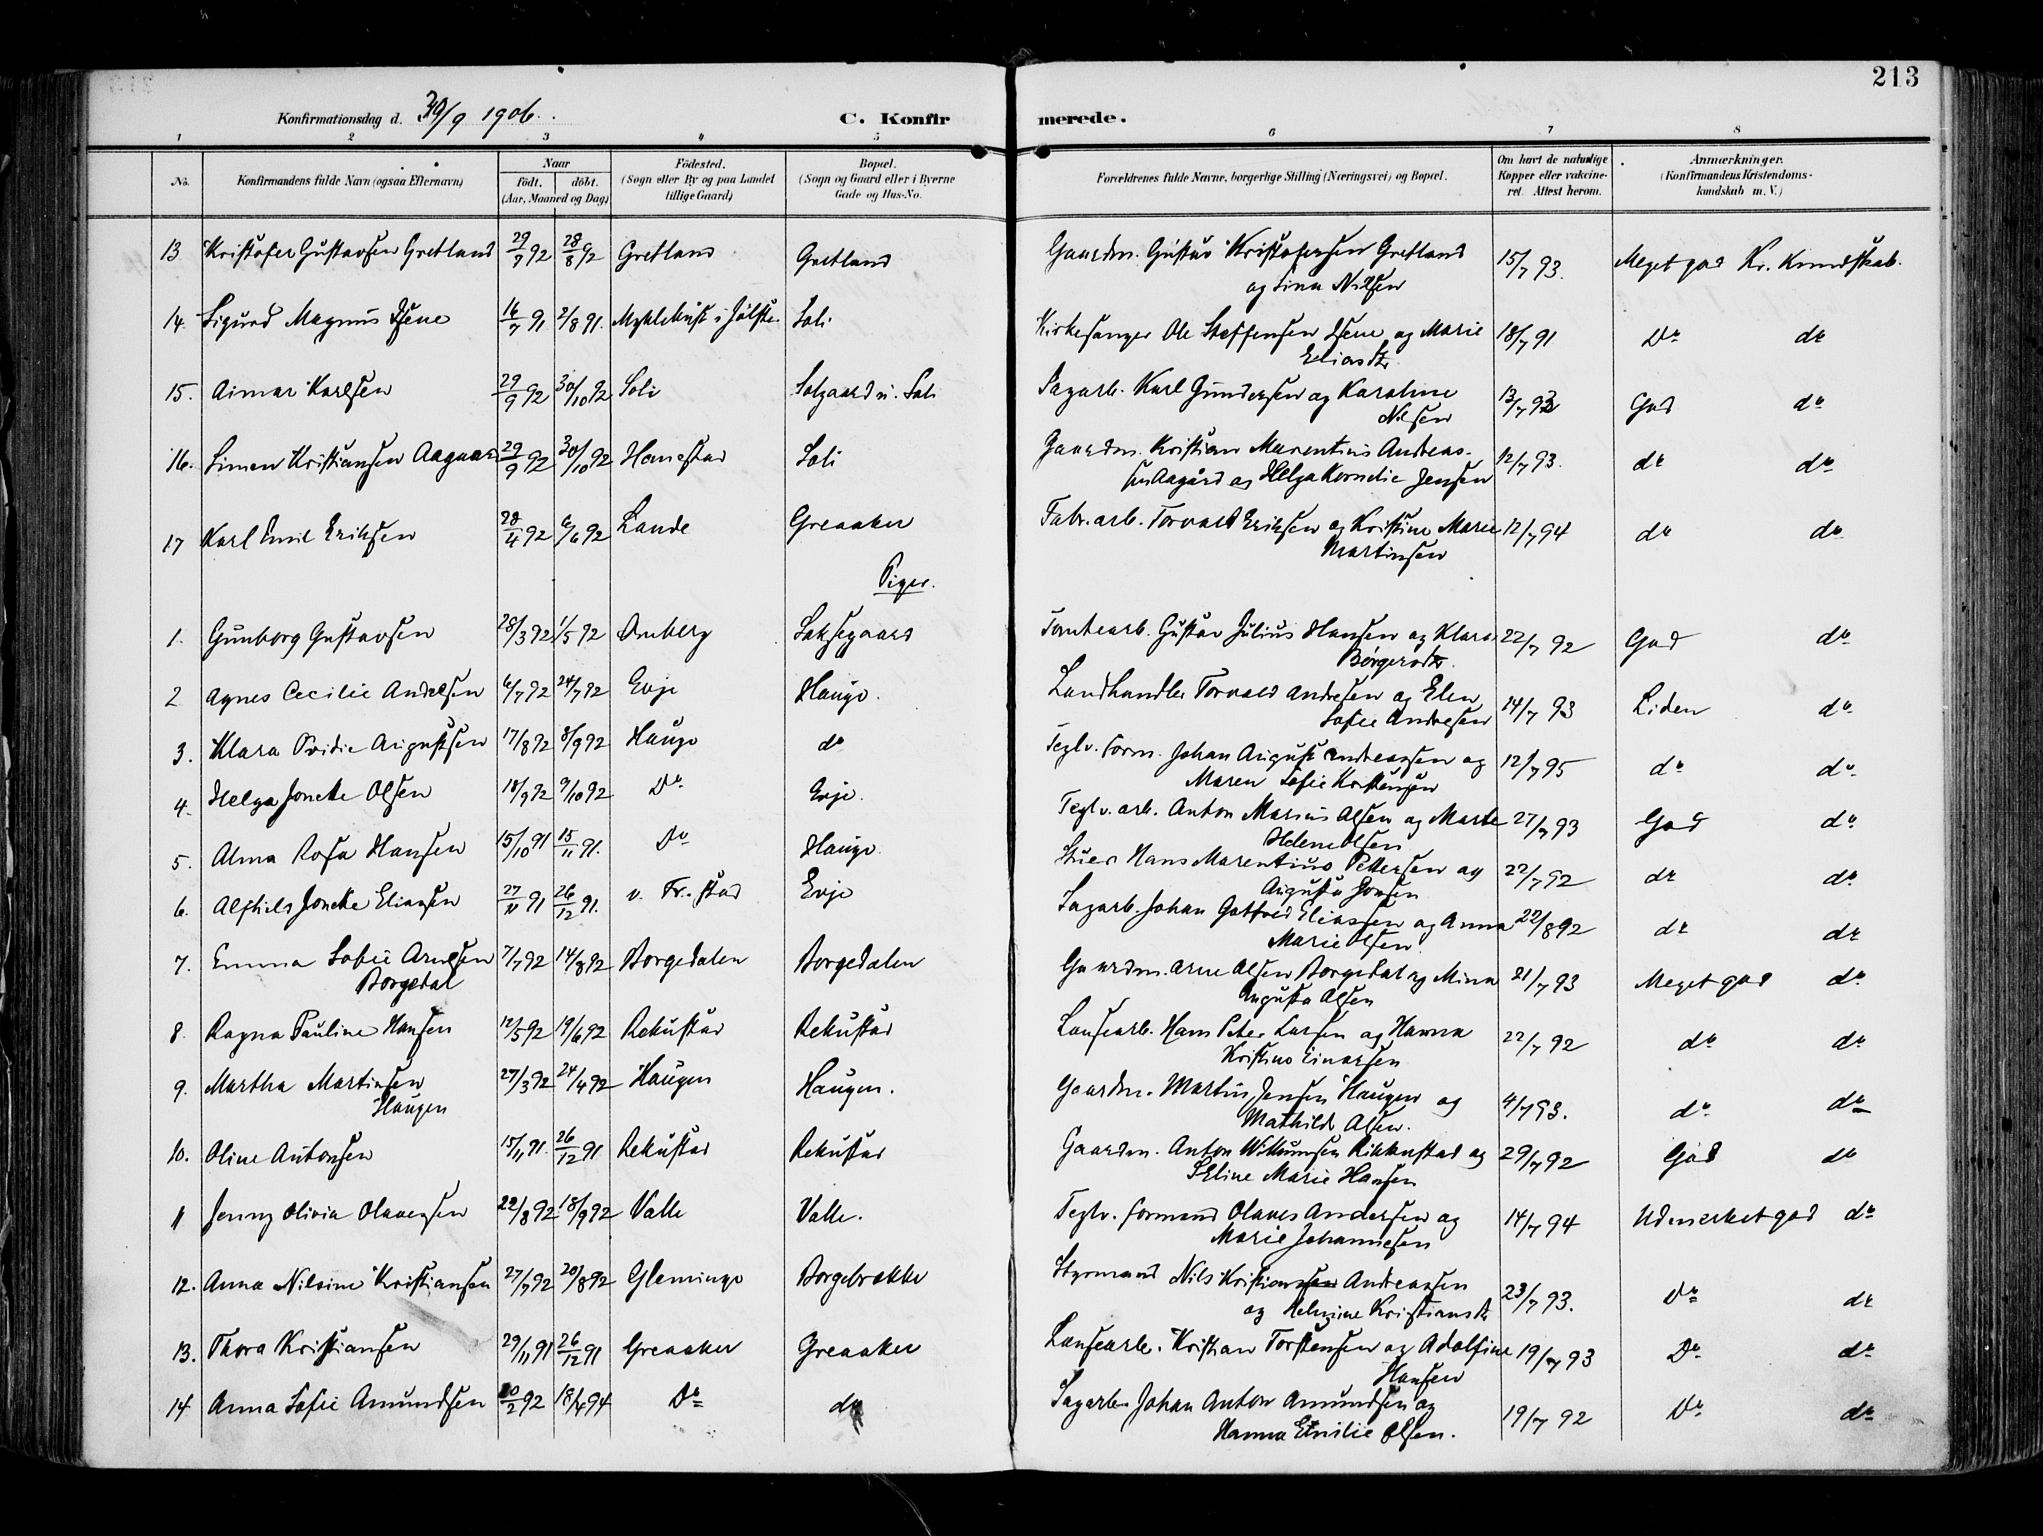 213
Konfirmationsdag d. 30/9 1906. C. Konfirmerede.
1 2 3 4 5 6 7 8
No. Konfirmandens fulde Navn (ogsaa Efternavn) Naar født. døbt. (Aar, Maaned og Dag) Födested. (Sogn eller By og paa Landet tillige Gaard) Bopæl. (Sogn og Gaard eller i Byerne Gade og Hus-No. Forældrenes fulde Navne, borgerlige Stilling (Næringsvei) og Bopæl. Om havt de naturlige Kopper eller vakcineret. Attest herom. Anmærkninger. (Konfirmandens Kristendomskundskab m. V.)
13 Kristofer Gustavsen Gretland 29/7 92 28/8 92 Gretland Gretland Gaardm. Gustav Kristofersen Gretland 15/7 93. Meget god Kr. Kundskab.
og Lina Nilsen
14. Sigurd Magnus 16/7 91 2/8 91. Myklebust i Jølster Soli Kirkesanger Ole Steffensen og Marie 18/7 91 Do do
Eliasdtr
15. Aimar Karlsen 29/9 92 30/10 92 Soli Solgaard u. Soli Sagarb. Karl Gundersen og Karoline 13/7 93 God do
Nilsen
16. Simen Kristiansen Aagaard 29/9 92 30/10 92 Hanestad Soli Gaardm. Kristian Marentius Andreas- 12/7 93. do do
sen Aagård og Helga Kornelie Jensen
17 Karl Emil Eriksen 28/4 92 6/6 92 Lande Greaaker Fabr.arb. Torvald Eriksen og Kristine Marie 12/7 94 do do
Martinsen
Piger.
1. Gunborg Gustavsen 28/3 92 1/5 92 Omberg Laksegaard Tomtearb. Gustav Julius Hansen og Klara 22/7 92 God do
2 Agnes Cecilie Andresen 6/7 92 24/7 92 Evje Hauge. Landhandler Torvald Andresen og Elen 14/7 93 Liden do
Sofie Andresen
3. Klara Ovidie Augustsen 17/8 92 8/9 92 Hauge do Teglv. Form. Johan August Andreassen og 12/7 95 do do
Maren Sofie Kristensen
4. Helga Jonette Olsen 18/9 92 9/10 92 Do Evje. Teglv.arb. Anton Marius Olsen og Marte 27/7 93 God do
Helene Olsen
5. Alma Rosa Hansen 15/10 91 15/11 91. Do Hauge. Stuer Hans Marentius Pettersen og 22/7 92 do do
Augusta Jonsen
6. Alfhild Jonette Eliassen 27/11 91 26/12 91. v. Fr.stad Evje Sagarb. Johan Gotfred Eliassen og Anna 22/8 92 do do
Marie Olsen
7. Emma Sofie Arnesen 7/7 92 14/8 92 Borgedalen Borgedalen Gaardm. Arne Olsen Borgedal og Mina 21/7 93 Meget god do
Borgedal Augusta Olsen
8. Ragna Pauline Hansen 12/5 92 19/6 92 Rekustad Rekustad Lansearb. Hans Peter Larsen og Hanna 22/7 92 do do
Kristine Einarsen
9. Martha Martinsen 27/3 92 24/4 92 Haugen Haugen. Gaardm. Martin Jensen Haugen og 4/7 93. do do
Haugen Mathilde Olsen.
10. Oline Antonsen 15/11 91. 26/12 91 Rekustad Rekustad Gaardm. Anton Wilhumsen Rikkustad og 29/7 92 God do
Eline Marie Hansen
11 Jenny Olivia Olavesen 22/8 92 18/9 92 Valle Valle. Teglv. formand Olaves Andersen og 14/7 94 Udmerket god do
Marie Johannesen
12. Anna Nilsine Kristiansen 27/7 92 20/8 92 Glemminge Borgebrække Styrmand Nils Kristian Andreassen 23/7 93. Do do
og Helmine Kristiansdtr
13. Thora Kristiansen 29/11 91 26/12 91 Greaaker Greaaker Lansearb. Kristian Torstensen og Adolfine 19/7 93 Do do
Hansen
14 Anna Sofie Amundsen 20/2 92 18/4 94 Do do Sagarb. Johan Anton Amundsen og 19/7 92 Do do
Hanna Emilie Olsen.